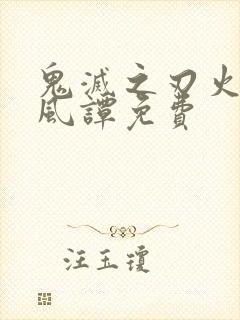 鬼滅之刃火
風譚免費
汪玉瓊